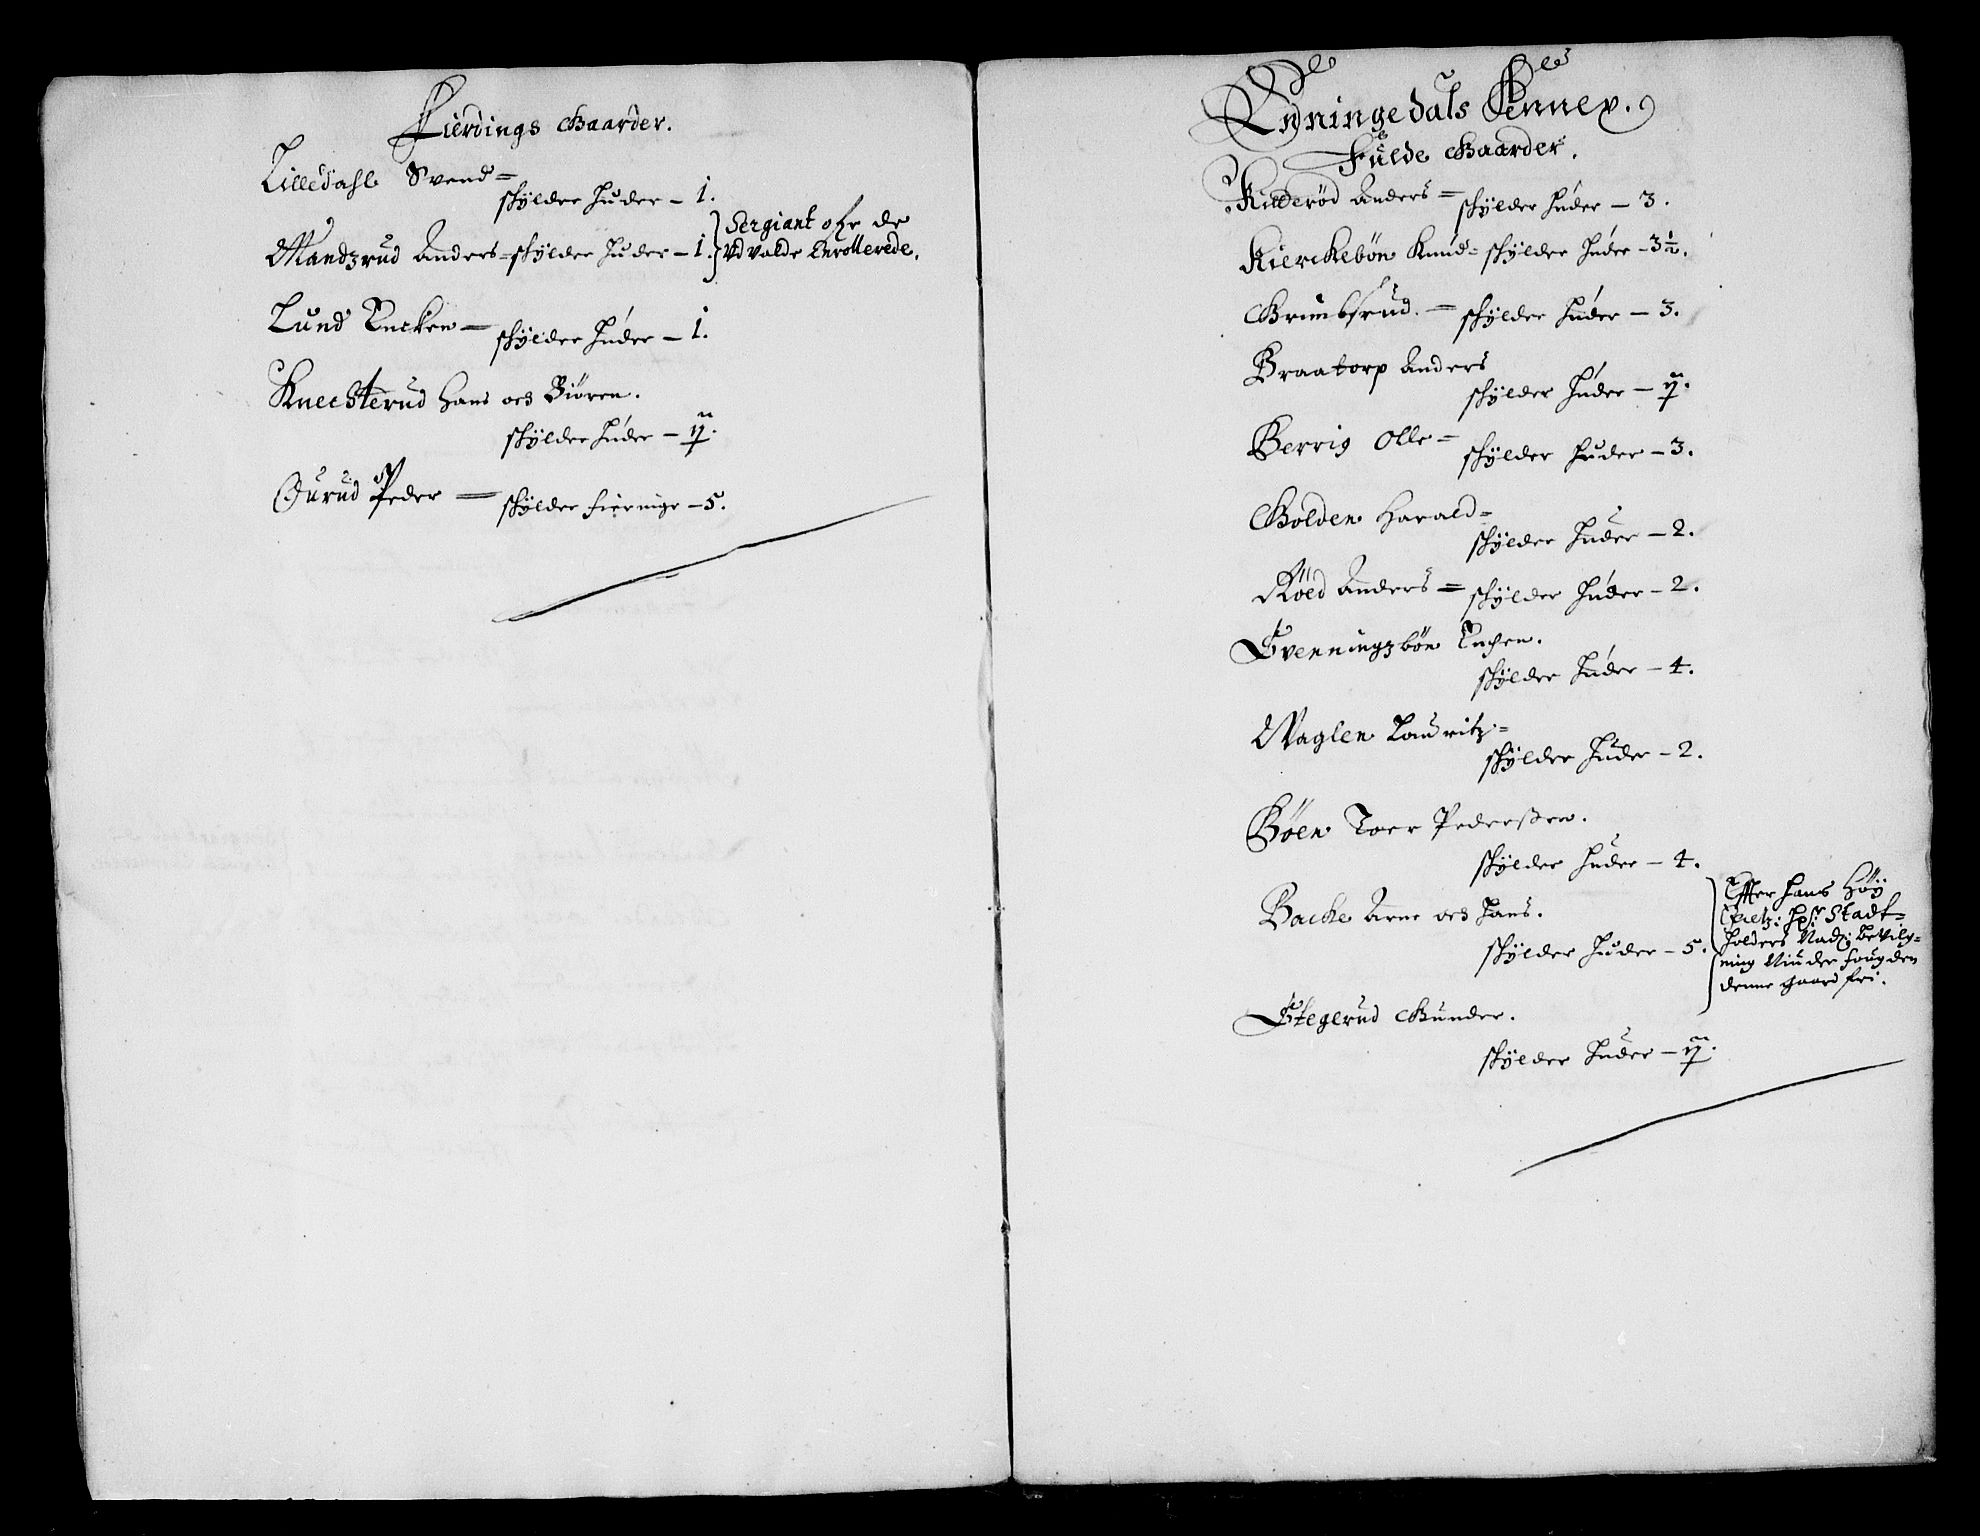 Fierdings Gaarder.
Lilledahl Svend =
schylder huder — 1.
Mandzrud Anders = schylder huder — 1. Sergiant ofr de
Vdvalde Enrollerede.
Lund Encken —
schylder huder — 1.
Knechterud Hans och Biören.
schylder huder —
Gurud Peder — schylder fieringe — 5.
Enningedals Annex.
Fulde Gaarder.
Killerød Anders = schylder huder — 3.
Kierckebön Knud = schylder huder — 3½.
Grimbsrud. = schylder huder — 3.
Braatorp Anders
schylder huder —
Berrig Olle =
schylder huder — 3.
Holden Harald =
schylder huder — 2.
Röed Anders = schylder huder — 2.
Svenningzbön Enchen.
schylder huder — 4.
Waglen Lauritz =
schylder huder — 2.
Böen Toer Pederssen.
schylder huder — 4.
Backe Arne och Hans.
schylder huder — 5.
Effter hans Höy
Stadt=
holders Nad: bevilg=
ning Niuder fougden
denne gaard fri.
Stegerud Gunder.
schylder huder —